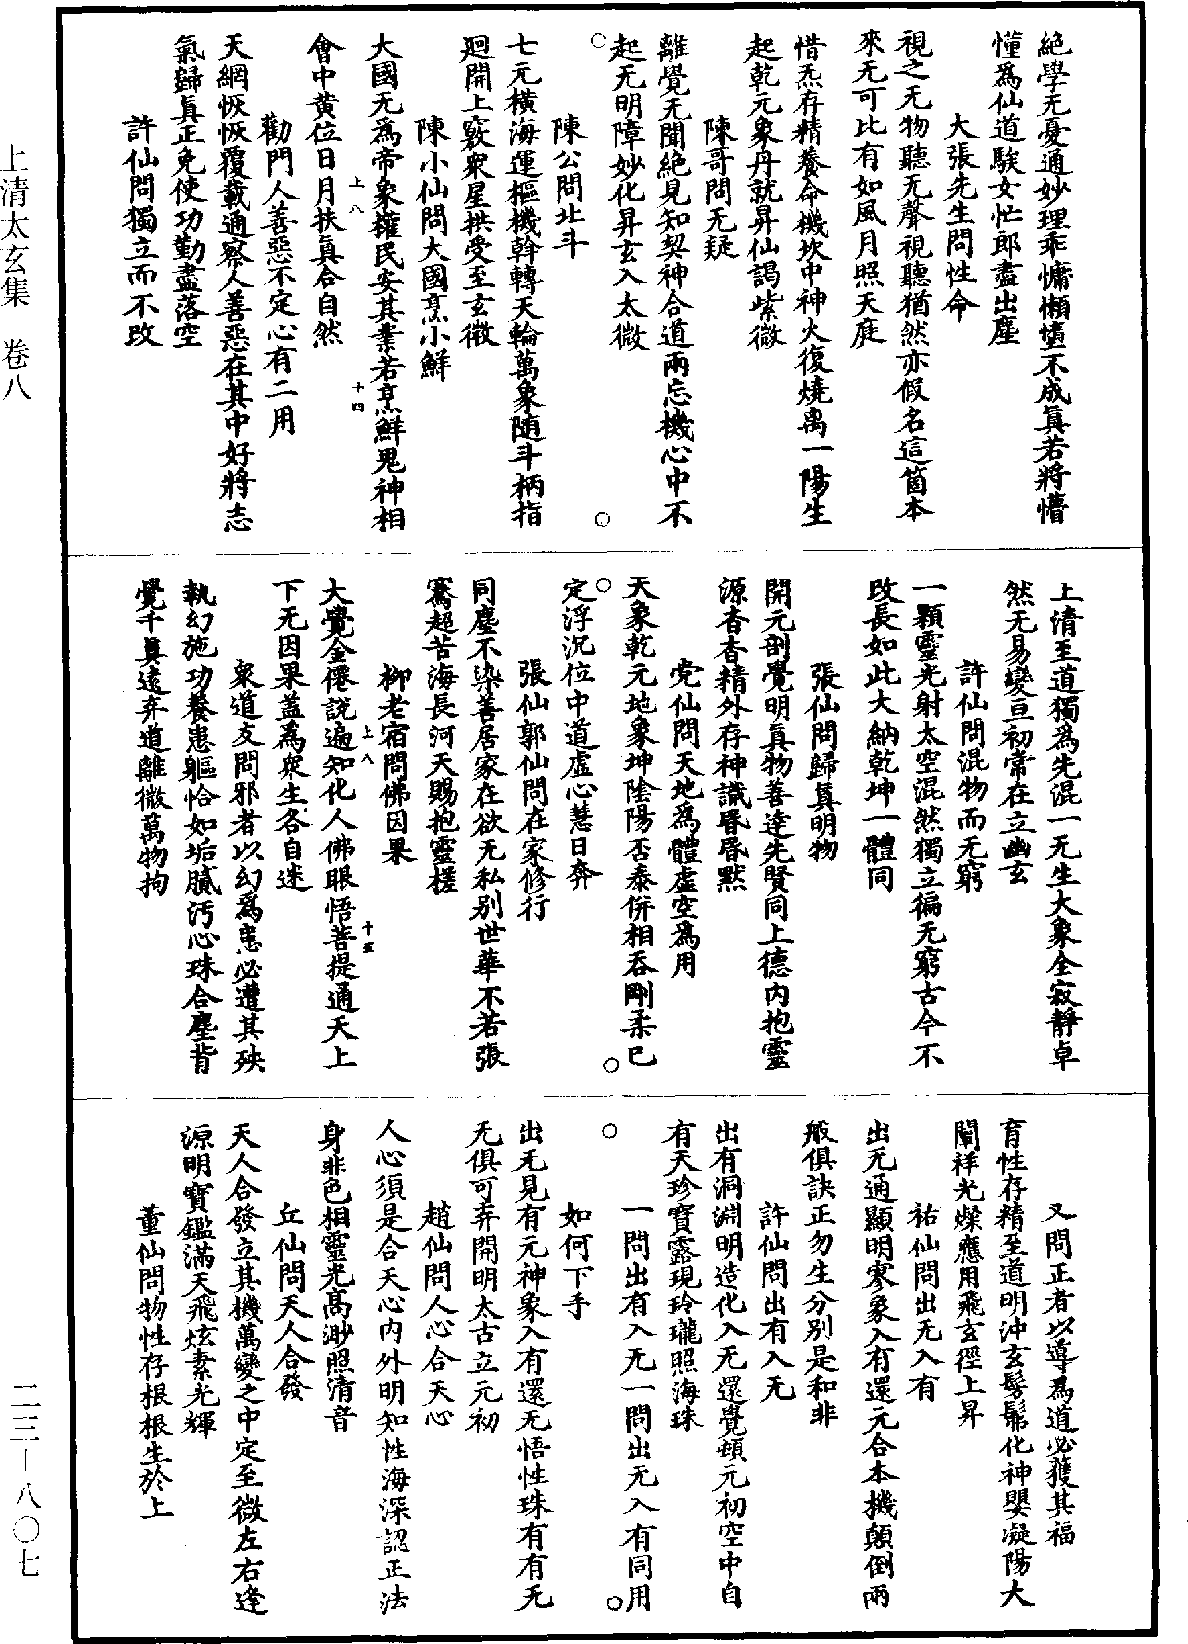 上清太玄集　卷八
二三—八〇七
絕學无憂通妙理乖慵懶墮不成真若將懵
懂為仙道騃女忙郎盡出塵
大張先生問性命
視之无物聽无聲視聽猶然亦假名這箇本
來无可比有如風月照天庭
惜炁存精養命機坎中神火復燒离一陽生
起乾元象丹就昇仙謁紫微
陳哥問无疑
離覺无聞絕見知契神合道兩忘機心中不
起无明障妙化昇玄入太微
陳公問北斗
七元橫海運樞機斡轉天輪萬象随斗柄指
迴開上竅衆星拱受至玄微
陳小仙問大國烹小鮮
大國无為帝象權民安其業若烹鮮鬼神相
會中黄位日月扶真合自然
上八
十四
勸門人善惡不定心有二用
天網恢恢覆載通察人善惡在其中好將志
氣歸真正免使功勤盡落空
許仙問獨立而不改
上清至道獨為先混一无生大象全寂靜卓
然无易變亘初常在立幽玄
許仙問混物而无窮
一顆靈光射太空混然獨立徧无窮古今不
改長如此大納乾坤一體同
張仙問歸真明物
開元剖覺明真物善達先賢同上德内抱靈
源杳杳精外存神識昏昏默
党仙問天地為體虛空為用
天象乾元地象坤陰陽否泰併相吞剛柔已
定浮沉位中道虛心慧日奔
張仙郭仙問在家修行
同塵不染善居家在欲无私别世華不若張
騫超苦海長河天賜抱靈槎
柳老宿問佛因果
大覺金僊說遍知化人佛眼悟菩提通天上
下无因果盖為衆生各自迷
上八
十五
衆道友問邪者以幻為患必遭其殃
執幻施功養患軀恰如垢膩汚心珠合塵背
覺千真遠弃道離微萬物拘
又問正者以導為道必獲其福
育性存精至道明沖玄髣髴化神嬰凝陽大
闡祥光燦應用飛玄徑上昇
祐仙問出无入有
出无通顯明寥象入有還元合本機顛倒兩
般俱訣正勿生分别是和非
許仙問出有入无
出有洞淵明造化入无還覺頓元初空中自
有天珍寶露現玲瓏照海珠
一問出有入无一問出无入有同用
如何下手
出无見有元神象入有還无悟性珠有有无
无俱可弃開明太古立元初
趙仙問人心合天心
人心須是合天心内外明知性海深認正法
身非色相靈光高渺照清音
丘仙問天人合發
天人合發立其機萬變之中定至微左右逢
源明寶鑑滿天飛炫素光輝
董仙問物性存根根生於上